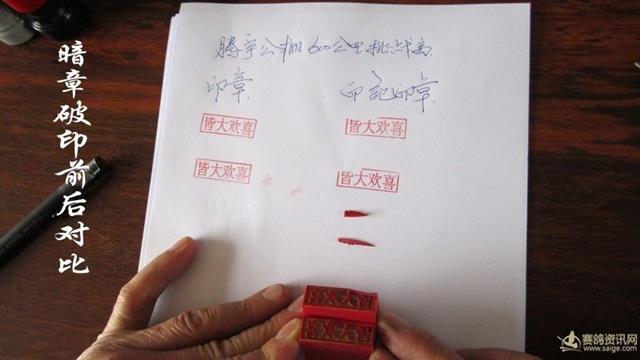 暗章破印前后对比
公棚600公里挑战赛
印章
皆大欢喜
皆大欢喜
皆大欢喜
皆大欢喜
赛鸽资讯网
www.saige.com